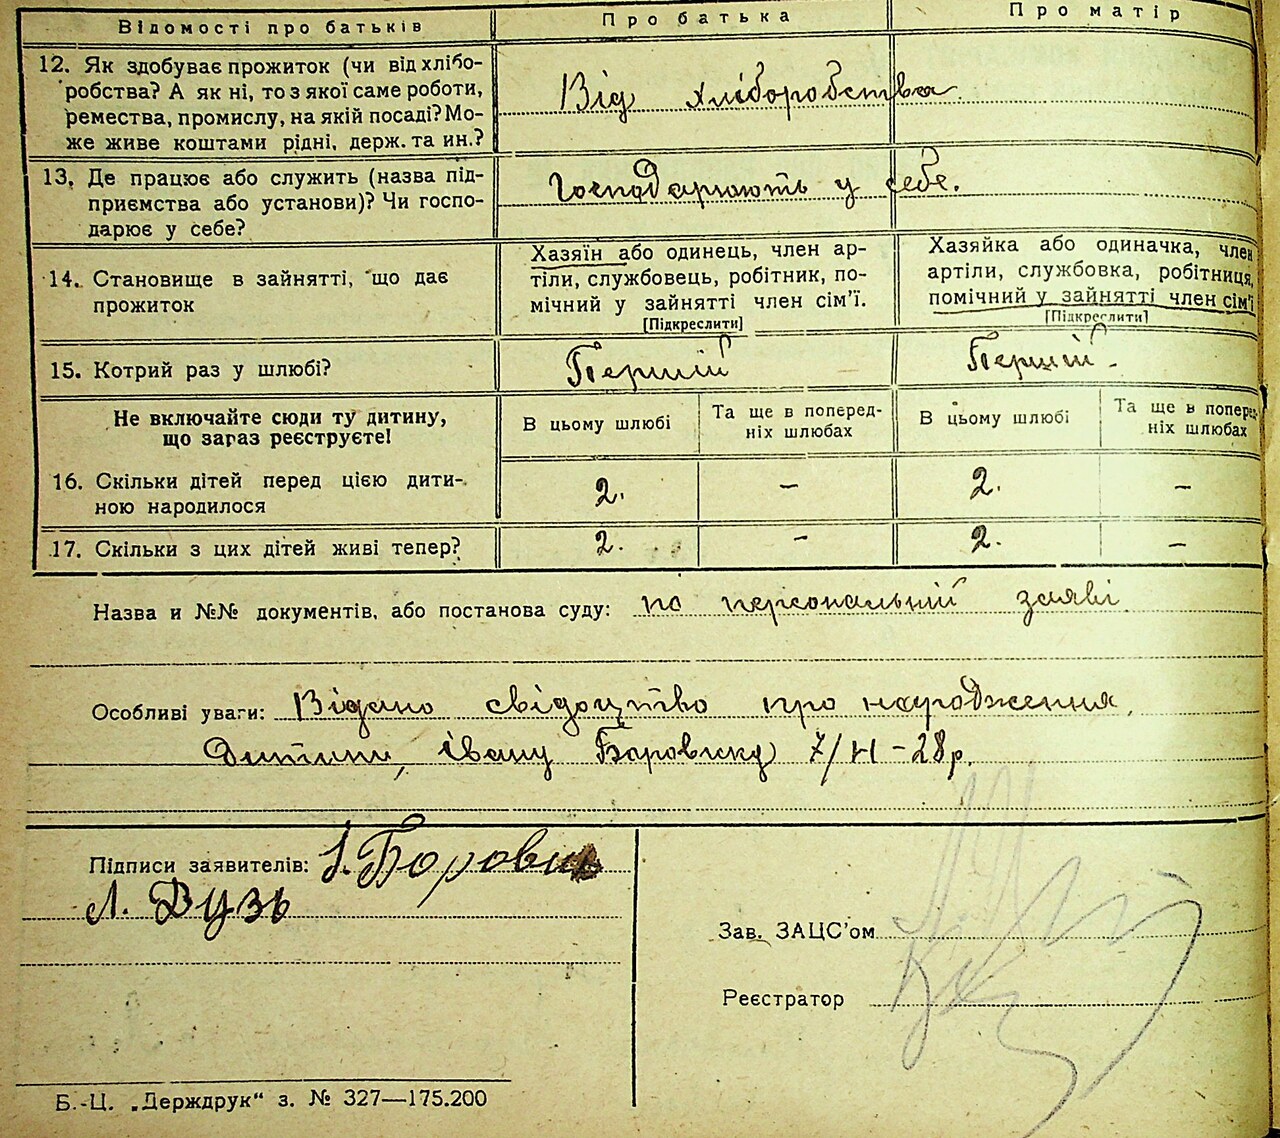 Відомості про батьків Про батька Про матір
12. Як здобуває прожиток (чи від хлібо-
робства? А як ні, то з якої саме роботи,
ремества, промислу, на якій посаді? Мо-
же живе коштами рідні, держ. та ин.?
Від хліборобства
13. Де працює або служить (назва під-
приємства або установи)? Чи госпо-
дарює у себе?
Господарюють у себе.
14. Становище в зайнятті, що дає
прожиток
Хазяїн або одинець, член ар-
тіли, службовець, робітник, по-
мічний у зайнятті член сім'ї.
[Підкреслити]
Хазяйка або одиначка, член
артіли, службовка, робітниця,
помічний у зайнятті член сім'ї
[Підкреслити]
15. Котрий раз у шлюбі? Першій Першій
Не включайте сюди ту дитину,
що зараз реєструєте!
В цьому шлюбі
Та ще в поперед-
ніх шлюбах
В цьому шлюбі
Та ще в поперед-
ніх шлюбах
16. Скільки дітей перед цією дити-
ною народилося
2. – 2. –
17. Скільки з цих дітей живі тепер? 2. – 2. –
Назва и №№ документів, або постанова суду: по персональній заяві.
Особливі уваги: Відано свідоцтво про народження
Дитини, івану Боровику 7/VI – 28 р.
Підписи заявителів: І. Борови
Л. Вузь
Зав. ЗАЦС'ом
Реєстратор
Б.-Ц. „Держдрук“ з. № 327—175.200